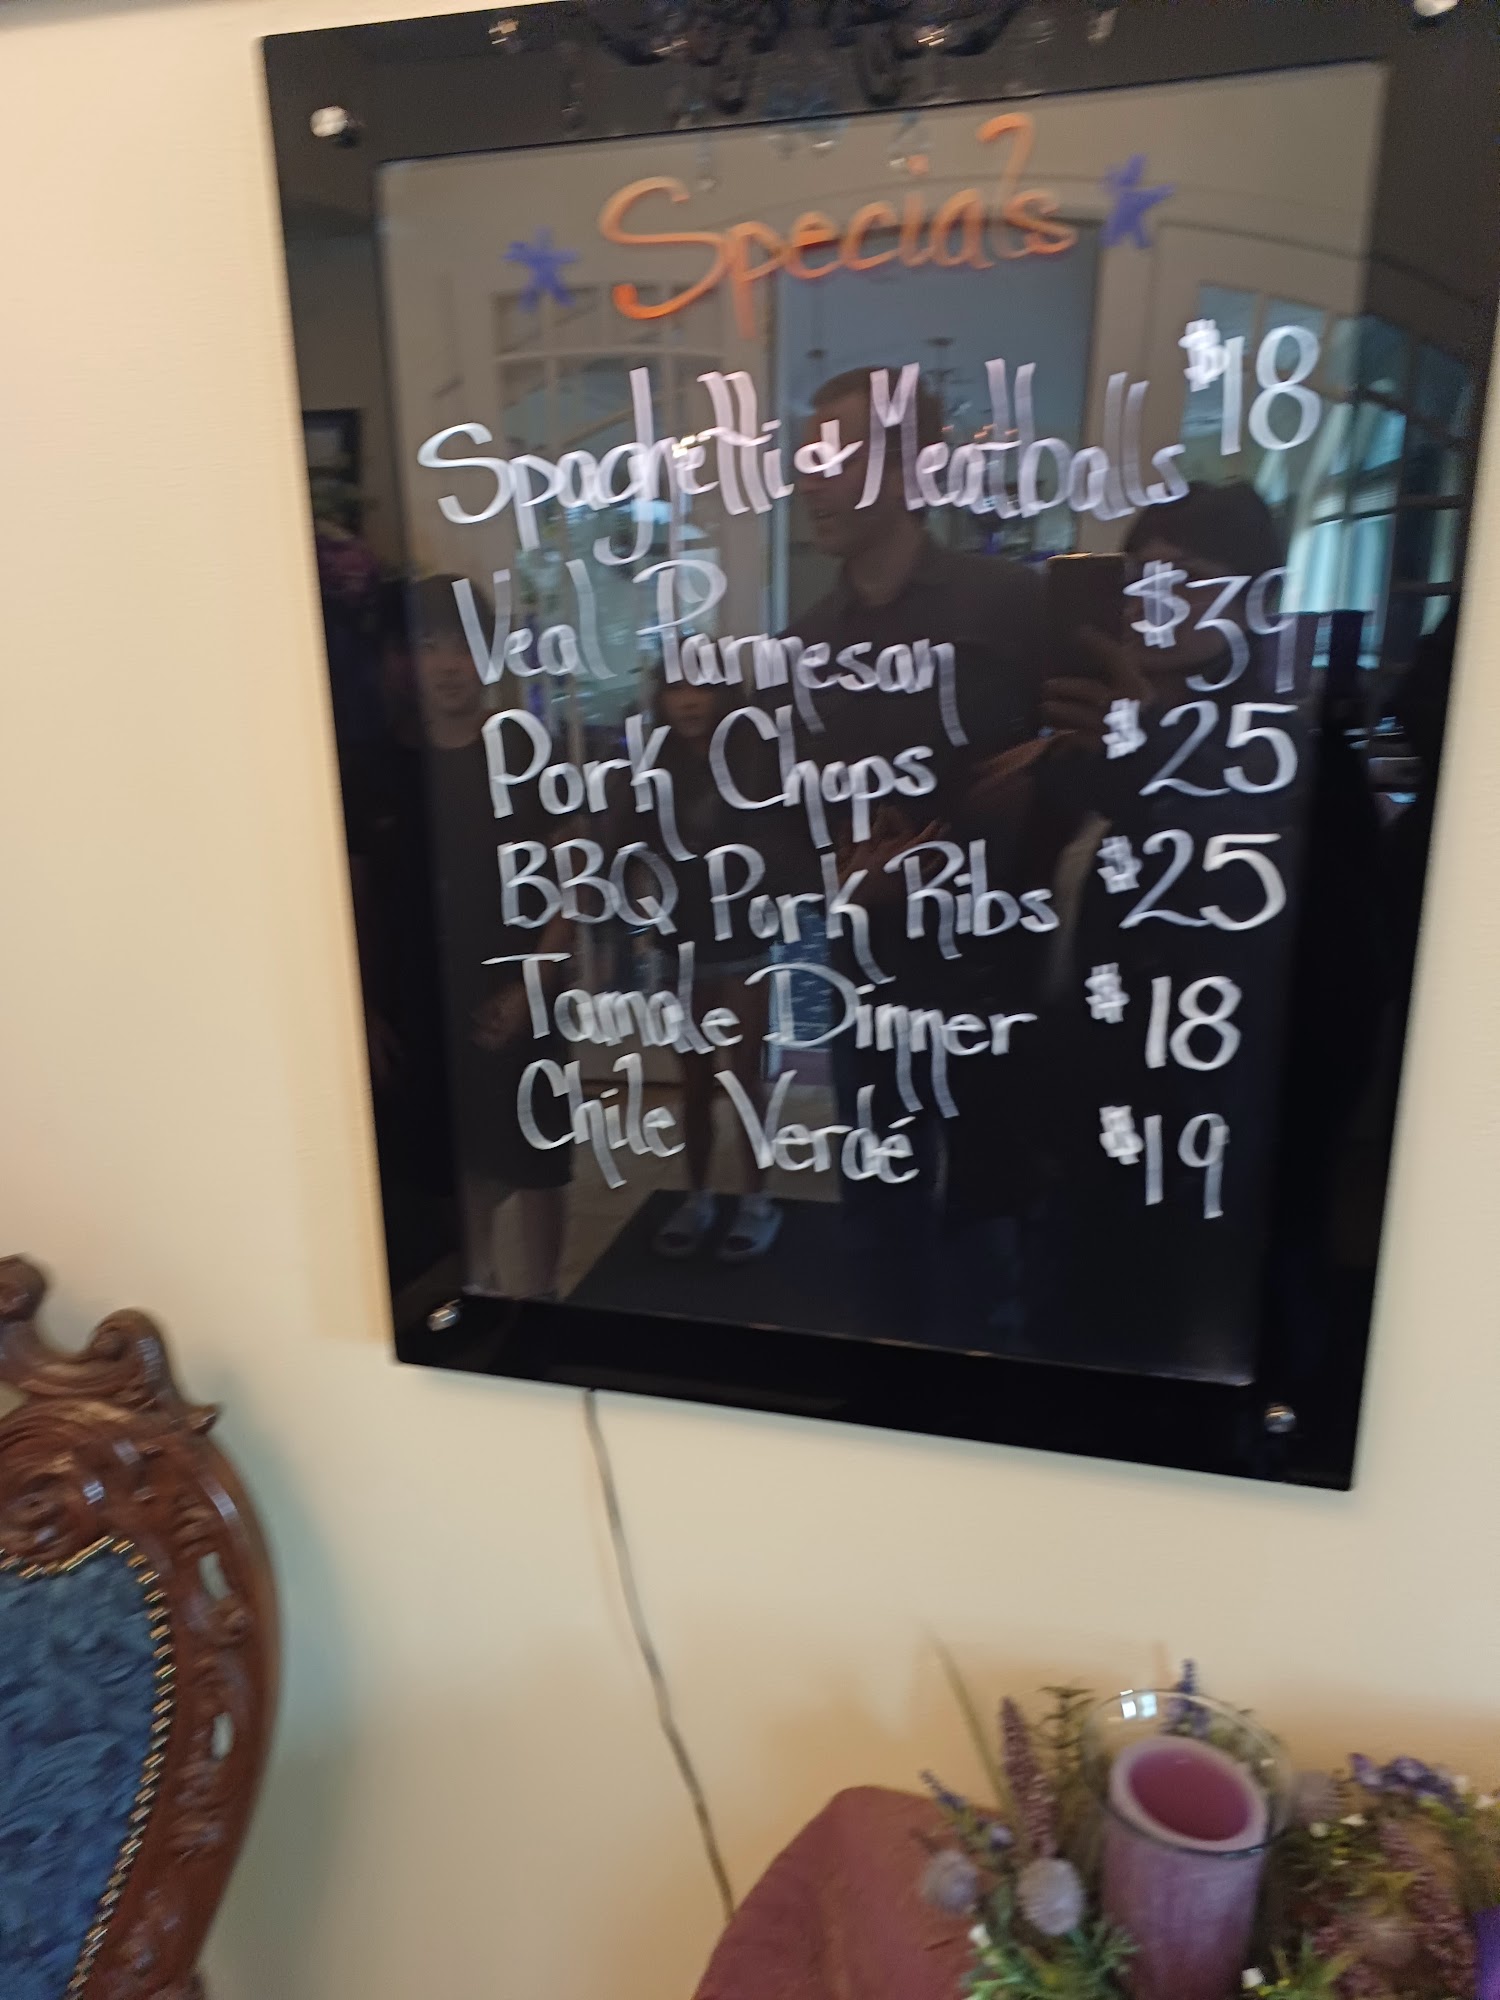 * Specials *
Spaghetti & Meatballs $18
Veal Parmesan $39
Pork Chops $25
BBQ Pork Ribs $25
Tamale Dinner $18
Chile Verdé $19